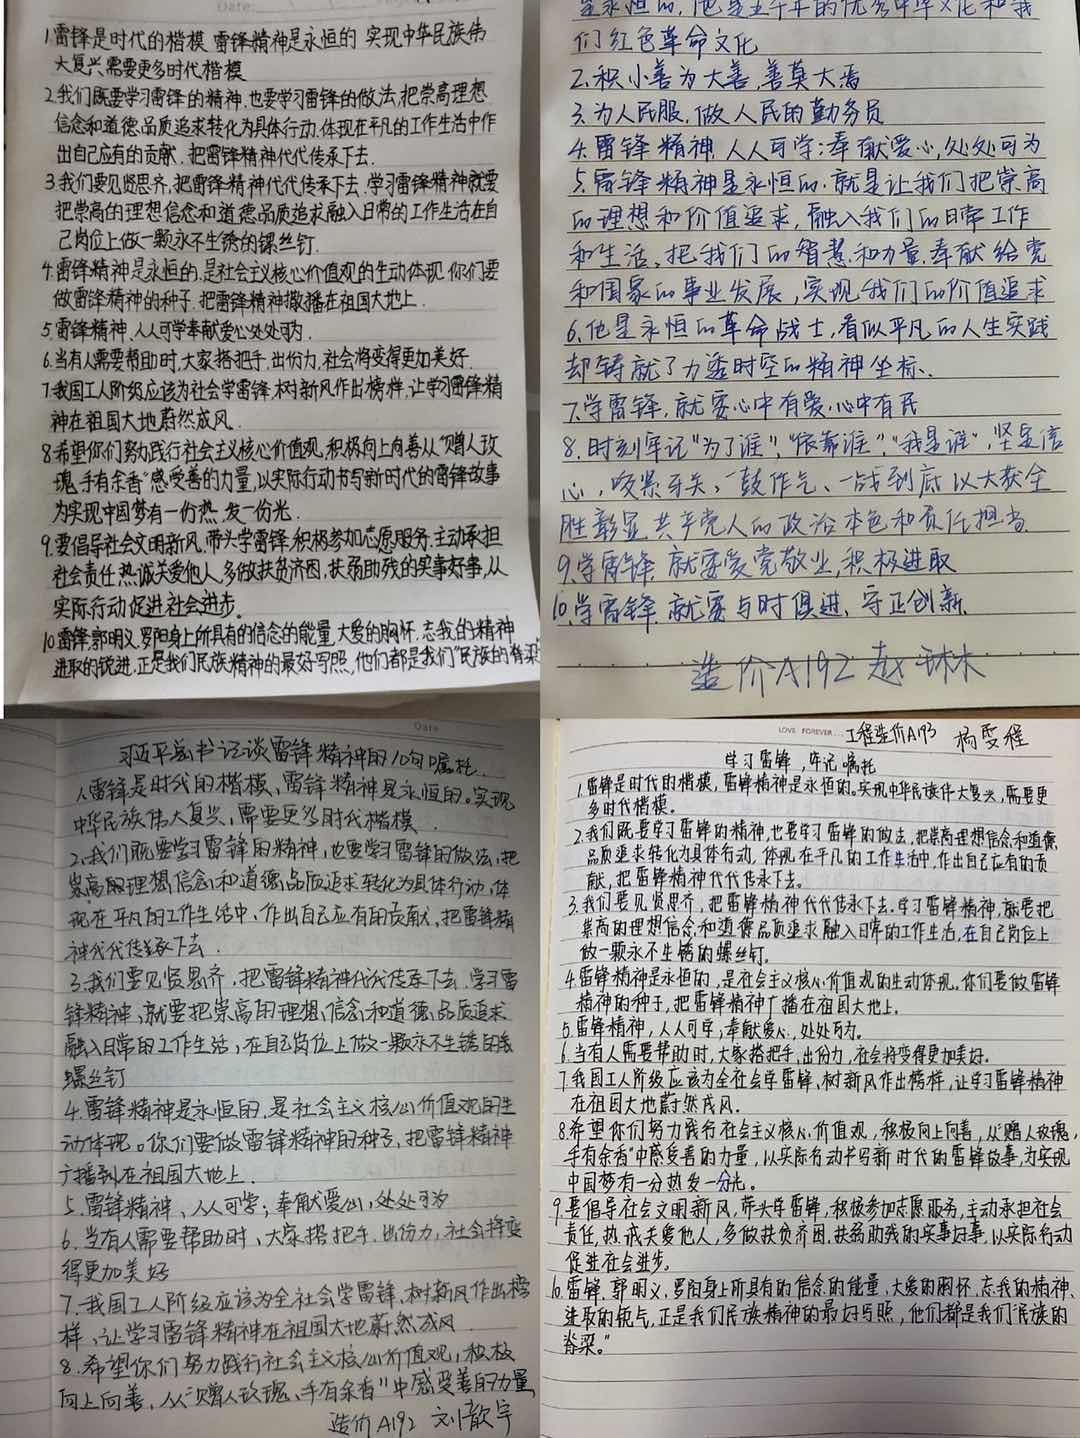 Date:
1.雷锋是时代的楷模 雷锋精神是永恒的 实现中华民族伟
大复兴需要更多时代楷模
2.我们既要学习雷锋的精神,也要学习雷锋的做法,把崇高理想
信念和道德品质追求转化为具体行动.体现在平凡的工作生活中作
出自己应有的贡献.把雷锋精神代代传承下去.
3.我们要见贤思齐,把雷锋精神代代传承下去.学习雷锋精神就要
把崇高的理想信念和道德品质追求融入日常的工作生活在自
己岗位上做一颗永不生锈的螺丝钉.
4.雷锋精神是永恒的.是社会主义核心价值观的生动体现 你们要
做雷锋精神的种子.把雷锋精神撒播在祖国大地上.
5.雷锋精神.人人可学奉献爱心处处可为.
6.当有人需要帮助时,大家搭把手.出份力,社会将变得更加美好.
7.我国工人阶级应该为社会学雷锋.树新风作出榜样,让学习雷锋精
神在祖国大地蔚然成风.
8.希望你们努力践行社会主义核心价值观,积极向上向善从“赠人玫
瑰,手有余香”感受善的力量,以实际行动书写新时代的雷锋故事
为实现中国梦有一份热.发一份光.
9.要倡导社会文明新风,带头学雷锋,积极参加志愿服务.主动承担
社会责任,热诚关爱他人,多做扶贫济困,扶弱助残的实事好事,从
实际行动促进社会进步.
10.雷锋.郭明义.罗阳身上所具有的信念的能量,大爱的胸怀,忘我的精神
进取的锐进.正是我们民族精神的最好写照,他们都是我们“民族的脊梁
是永恒的,他是五千年的优秀中华文化和我
们红色革命文化
2.积小善为大善,善莫大焉
3.为人民服,做人民的勤务员
4.雷锋精神 人人可学;奉献爱心,处处可为
5.雷锋精神是永恒的.就是让我们把崇高
的理想和价值追求,融入我们的日常工作
和生活、把我们的智慧和力量.奉献给党
和国家的事业发展,实现我们的价值追求
6.他是永恒的革命战士,看似平凡的人生实践
却铸就了力透时空的精神坐标.
7.学雷锋,就要心中有爱,心中有民
8.时刻牢记“为了谁”,“依靠谁”,“我是谁”,坚定信
心,咬紧牙关,一鼓作气、一战到底 以大获全
胜彰显共产党人的政治本色和责任担当
9.学雷锋 就要爱党敬业,积极进取
10.学雷锋 就要与时俱进、守正创新.
造价A192 赵琳
Date
习近平总书记谈雷锋精神的10句嘱托.
1.雷锋是时代的楷模、雷锋精神是永恒的。实现
中华民族伟大复兴,需要更多时代楷模.
2.我们既要学习雷锋的精神,也要学习雷锋的做法,把
崇高的理想信念和道德品质追求转化为具体行动,体
现在平凡的工作生活中、作出自己应有的贡献,把雷锋精
神代代传承下去.
3.我们要见贤思齐,把雷锋精神代代传承下去.学习雷
锋精神、就要把崇高的理想信念和道德品质追求
融入日常的工作生活,在自己岗位上做一颗永不生锈的
螺丝钉
4.雷锋精神是永恒的,是社会主义核心价值观的生
动体现。你们要做雷锋精神的种子,把雷锋精神
广播到在祖国大地上.
5.雷锋精神、人人可学;奉献爱心,处处可为
6.当有人需要帮助时、大家搭把手.出份力,社会将变
得更加美好
7.我国工人阶级应该为全社会学雷锋、树新风作出榜
样、让学习雷锋精神在祖国大地蔚然成风
8.希望你们努力践行社会主义核心价值观,积极
向上向善,从“赠人玫瑰、手有余香”中感受善的力量,
造价A192 刘歆宇
LOVE FOREVER... 工程造价A193 杨雯程
学习雷锋,牢记嘱托
1.雷锋是时代的楷模,雷锋精神是永恒的。实现中华民族伟大复兴,需要更
多时代楷模。
2.我们既要学习雷锋的精神,也要学习雷锋的做法,把崇高理想信念和道德
品质追求转化为具体行动,体现在平凡的工作生活中,作出自己应有的贡
献,把雷锋精神代代传承下去。
3.我们要见贤思齐,把雷锋精神代代传承下去.学习雷锋精神,就要把
崇高的理想信念和道德品质追求融入日常的工作生活,在自己岗位上
做一颗永不生锈的螺丝钉.
4.雷锋精神是永恒的,是社会主义核心价值观的生动体现。你们要做雷锋
精神的种子,把雷锋精神广播在祖国大地上.
5.雷锋精神,人人可学;奉献爱心,处处可为.
6.当有人需要帮助时,大家搭把手,出份力,社会将变得更加美好。
7.我国工人阶级应该为全社会学雷锋,树新风作出榜样,让学习雷锋精神
在祖国大地蔚然成风.
8.希望你们努力践行社会主义核心价值观,积极向上向善,从“赠人玫瑰,
手有余香”中感受善的力量,以实际行动书写新时代的雷锋故事,为实现
中国梦有一分热发一分光。
9.要倡导社会文明新风,带头学雷锋,积极参加志愿服务,主动承担社会
责任,热诚关爱他人,多做扶贫济困.扶弱助残的实事好事,以实际行动
促进社会进步。
10.雷锋,郭明义,罗阳身上所具有的信念的能量,大爱的胸怀,忘我的精神,
进取的锐气,正是我们民族精神的最好写照,他们都是我们“民族的
脊梁。”